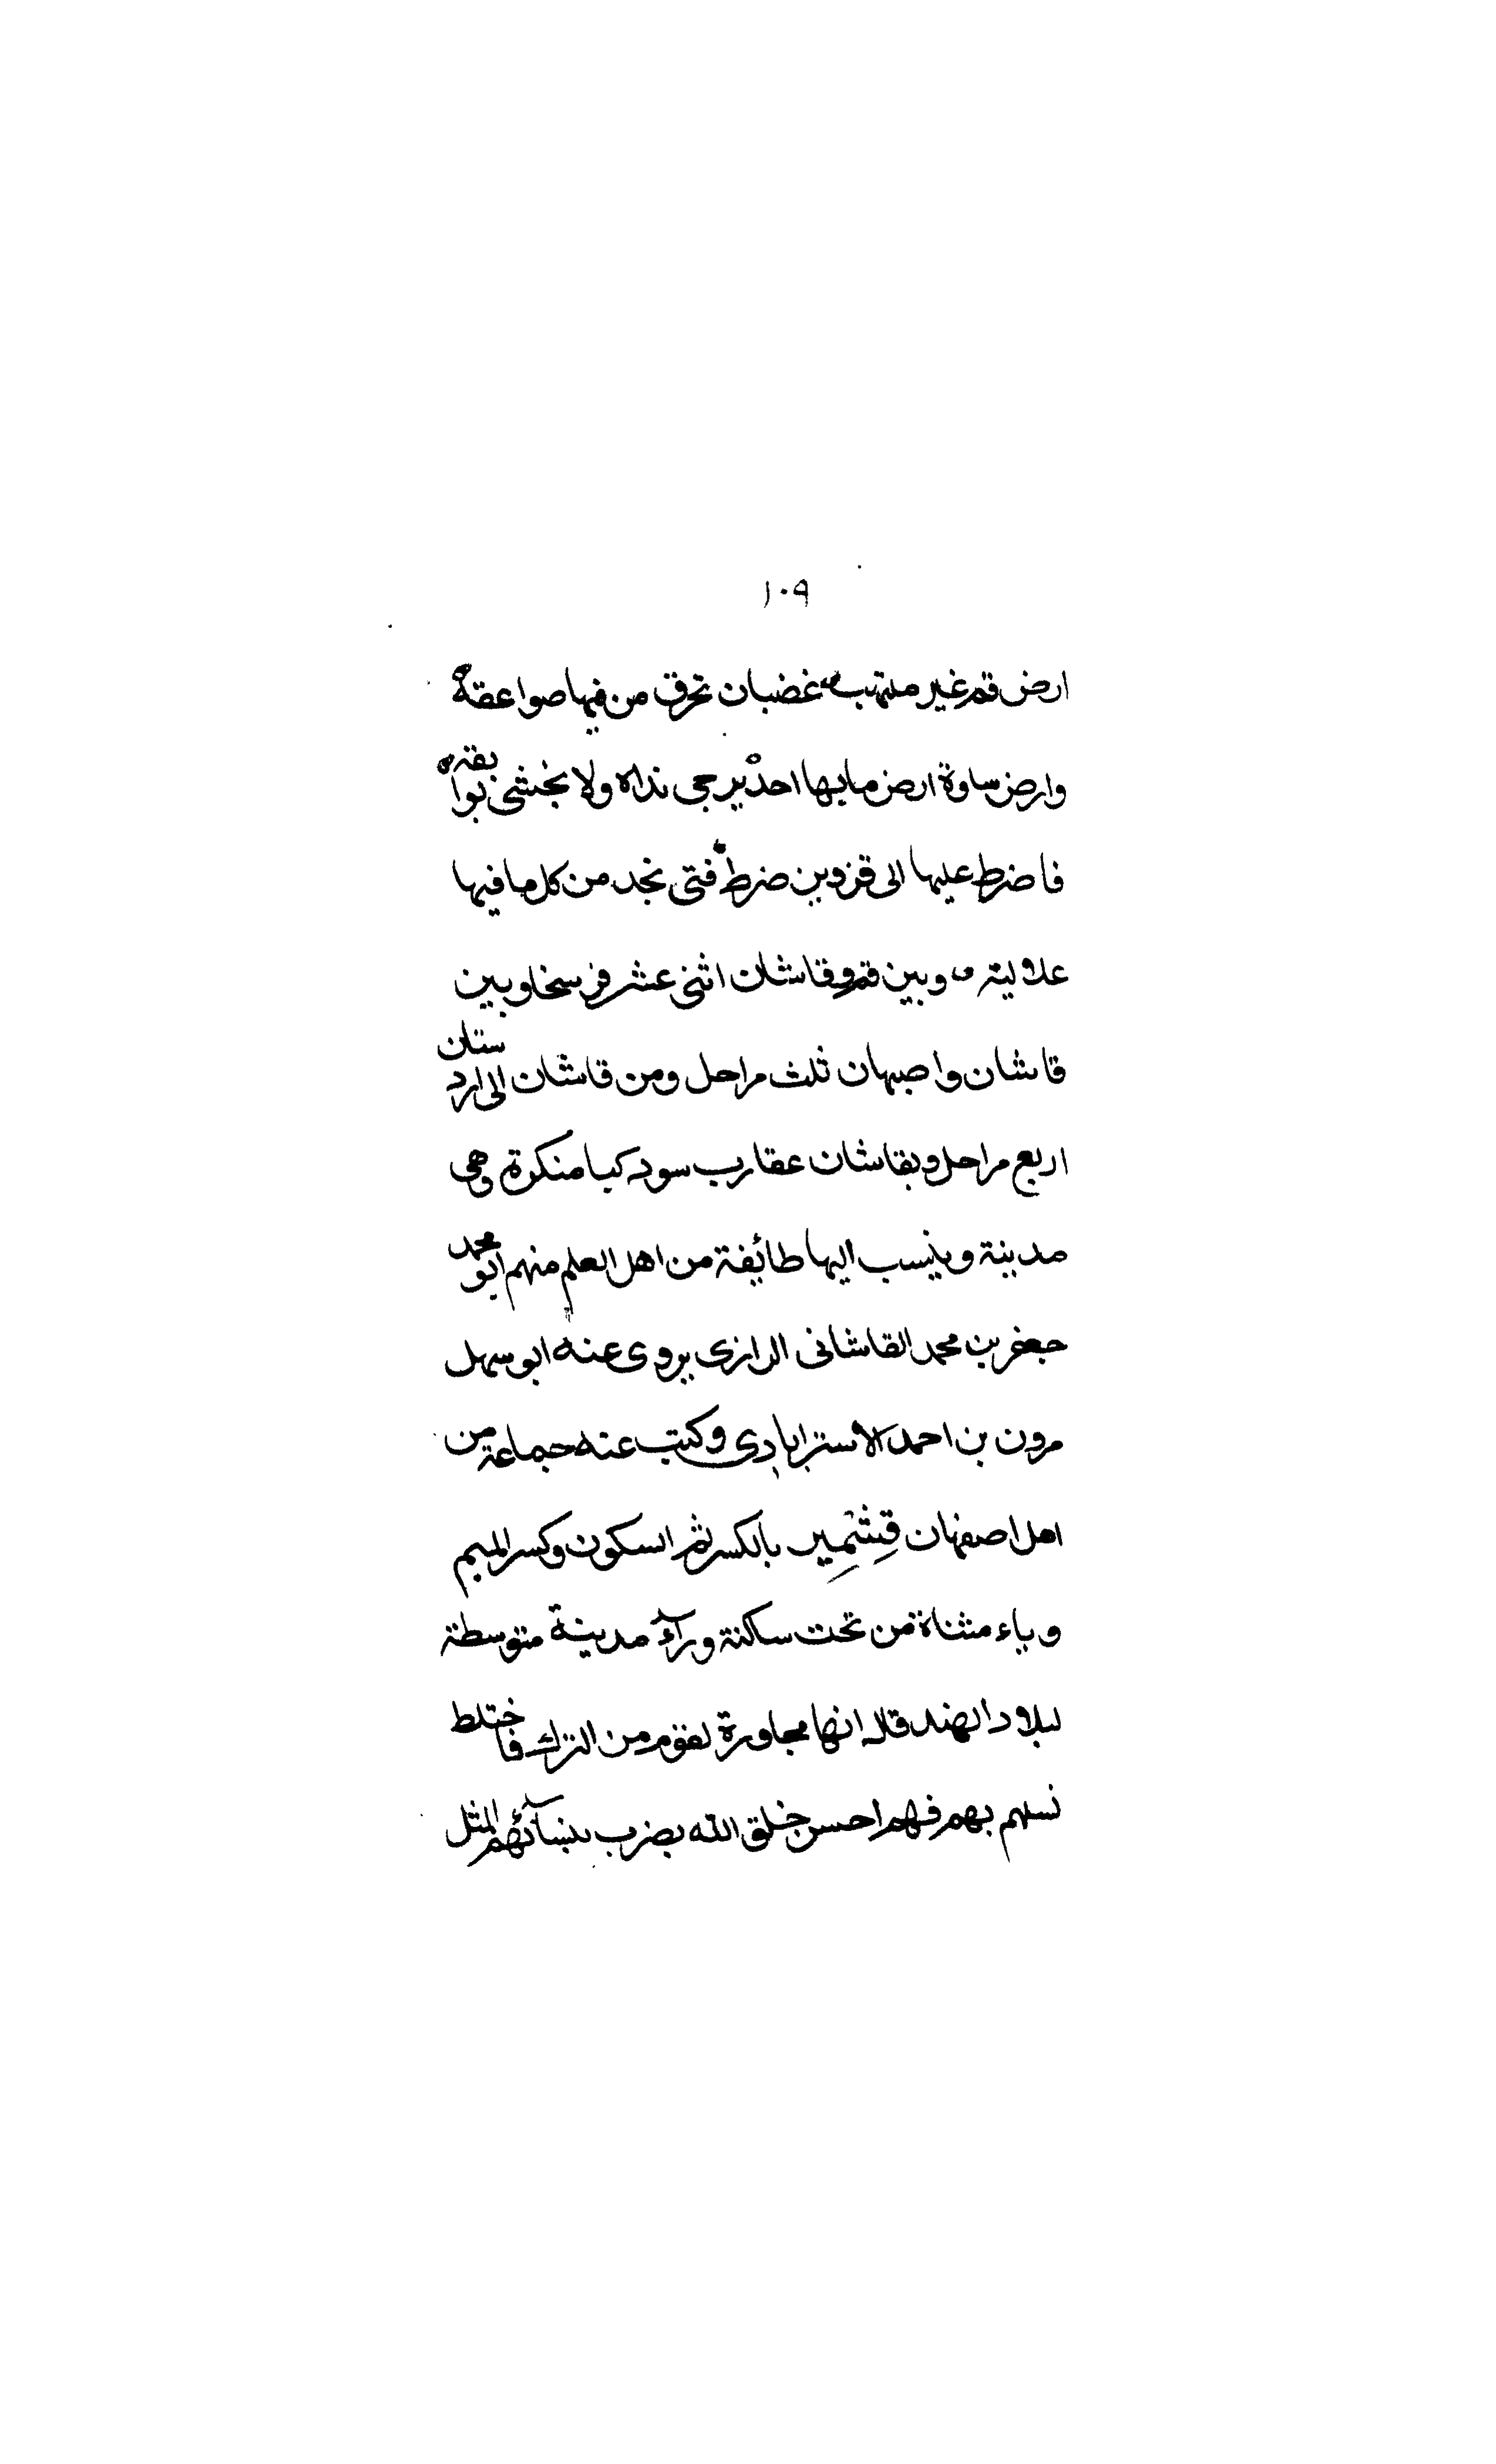 ١٠٩
ارض قم غير ملتهب غضبان تحرق من فيها صواعقه
وارض ساوة ارض ما بها احد يرجى نداه ولا يخشى بوايقه
فاضرط عليها الى قزوين ضرط فتى تجد من كل ما فيها
علاليته وبين قم وقاشان اثنى عشر فرسخا وبين
قاشان واصبهان ثلث مراحل ومن قاشان الى اردستان
اربع مراحل وبقاشان عقارب سود كبا منكرة وهى
مدينة وينسب اليها طائفة من اهل العلم منهم ابو محمد
جعفر بن محمد القاشانى الرازى يروى عنه ابو سهل
هرون بن احمد الاسترابادى وكتب عنه جماعة من
اهل اصفهان قِشْمِير بالكسر ثم السكون وكسر الميم
وياء مثناة من تحت ساكنة ورآء مدينة متوسطة
لبلاد الهند قال انها مجاورة لقوم من الترك فاختلط
نسلهم بهم فهم احسن خلق الله يضرب بنسآئهم المثل